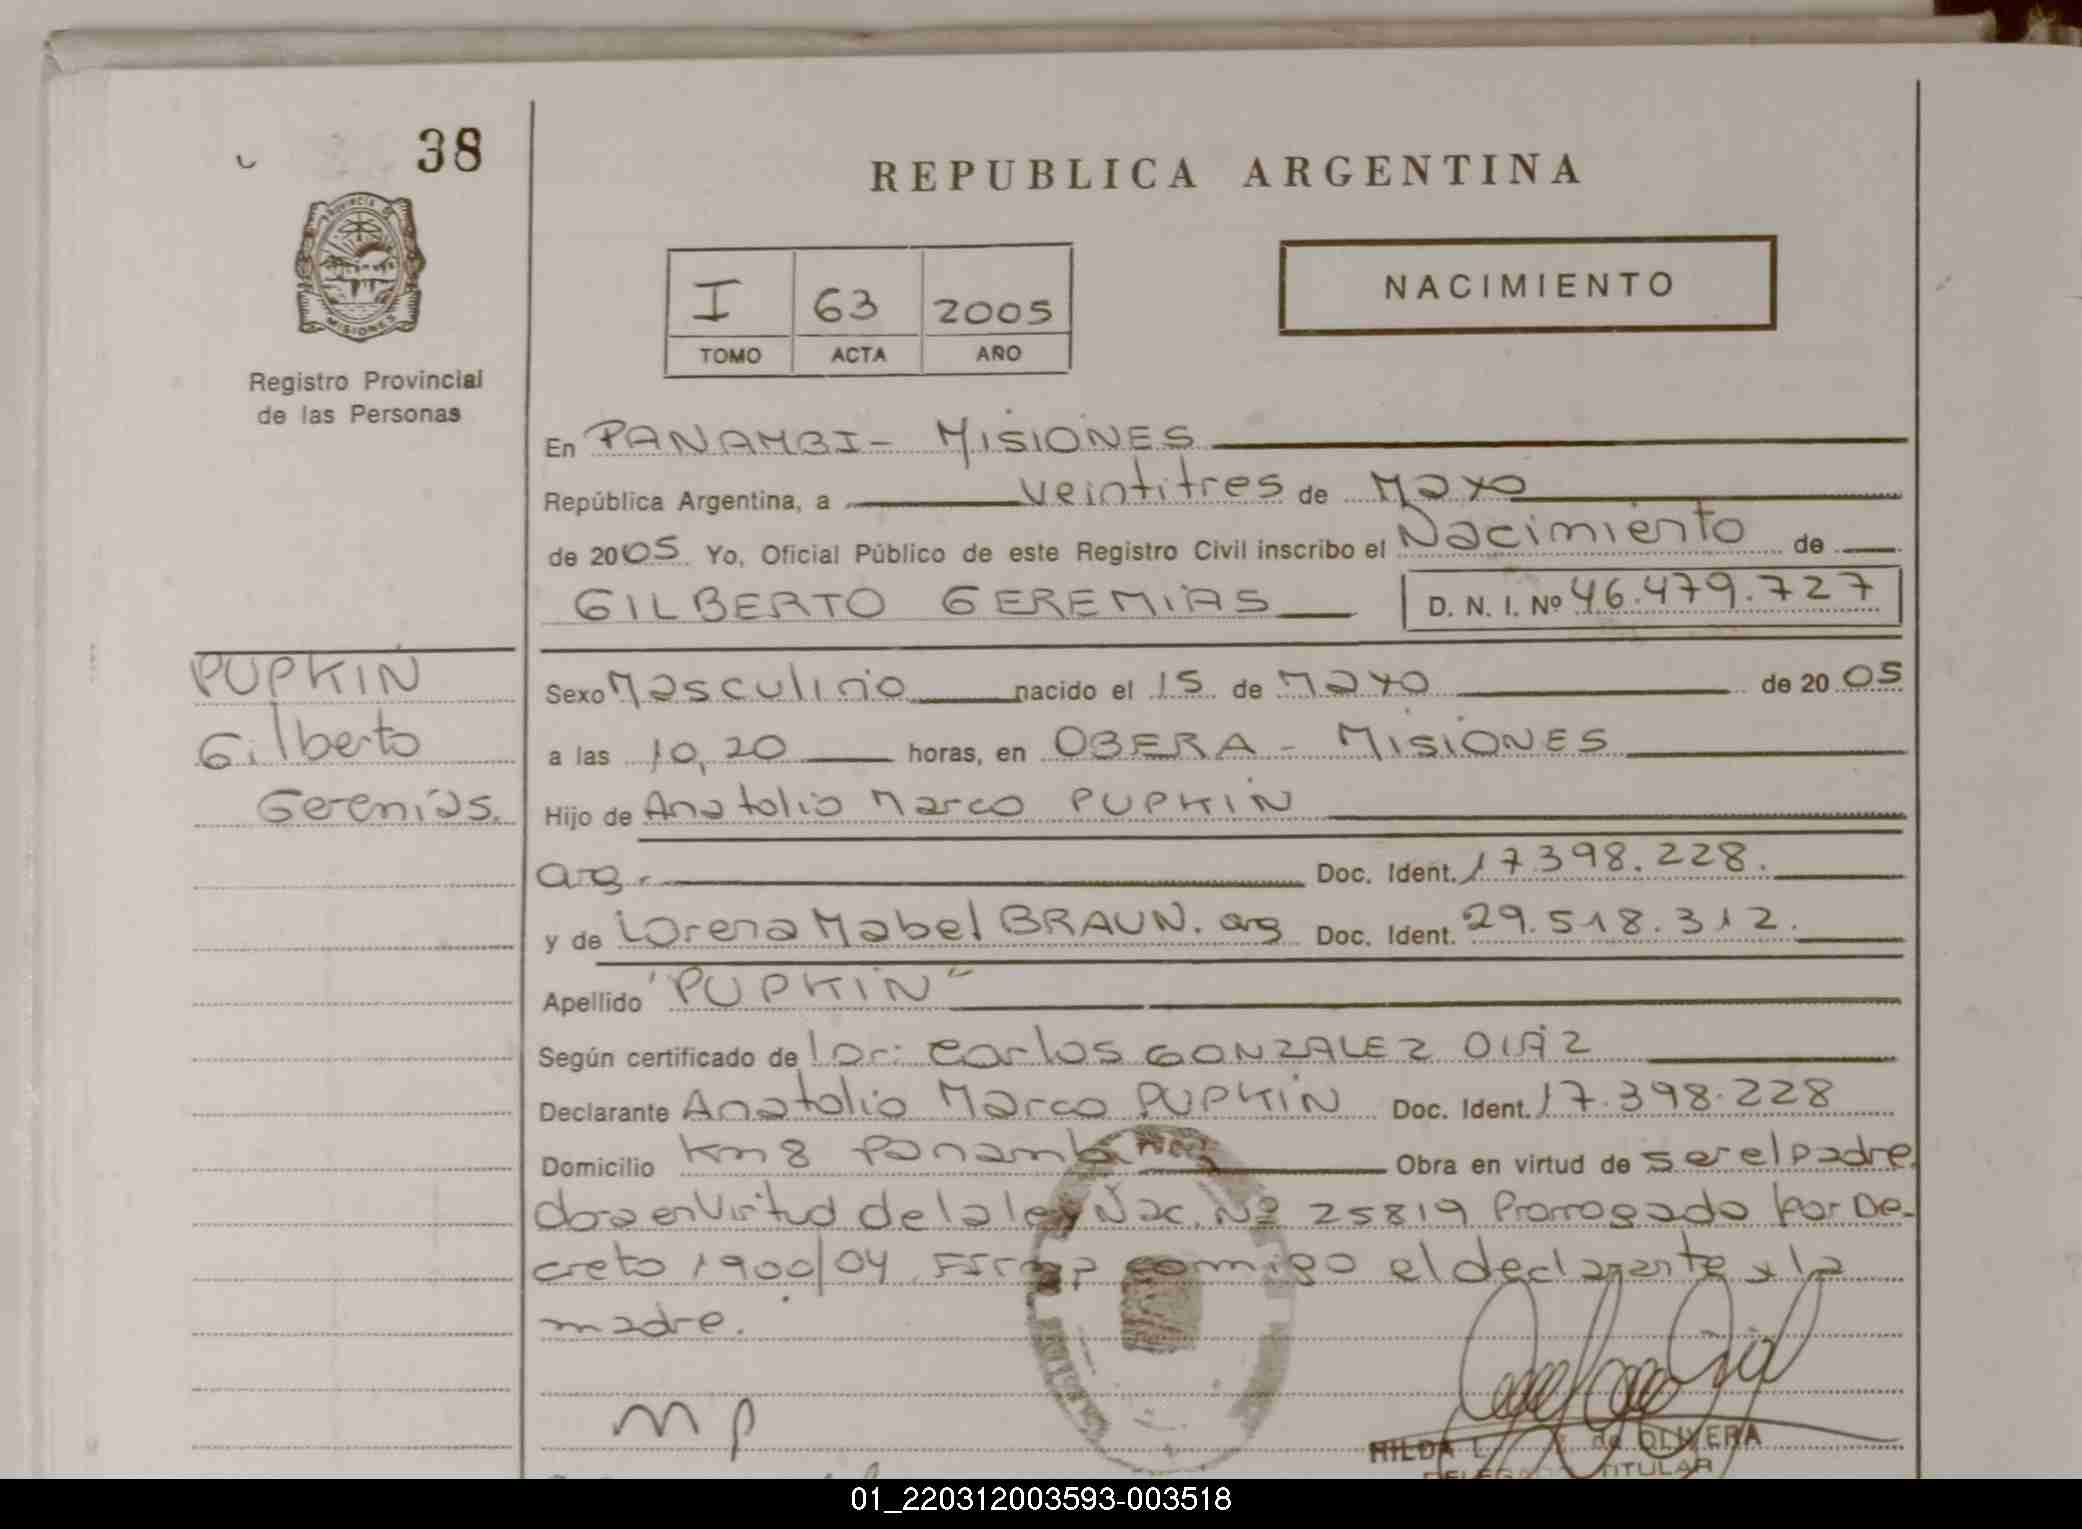 38
REPUBLICA ARGENTINA
PROVINCIA DE
MISIONES
Registro Provincial
de las Personas
I 63 2005
TOMO ACTA AÑO
NACIMIENTO
En PANAMBI - MISIONES
República Argentina, a veintitres de Mayo
de 2005 Yo, Oficial Público de este Registro Civil inscribo el Nacimiento de
GILBERTO GEREMIAS D. N. I. Nº 46.479.727
PUPKIN
Gilberto
Geremias.
Sexo Masculino nacido el 15 de Mayo de 2005
a las 10,20 horas, en OBERA - MISIONES
Hijo de Anatolio Marco PUPKIN
arg. Doc. Ident. 17398.228.
y de Lorena Mabel BRAUN. arg Doc. Ident. 29.518.312.
Apellido "PUPKIN"
Según certificado de Carlos GONZALEZ DIAZ
Declarante Anatolio Marco PUPKIN Doc. Ident. 17.398.228
Domicilio Km 8 Panambi Obra en virtud de ser el padre
obra en virtud de la ley Nac. Nº 25819 Prorrogado por De-
creto 1900/04. Firma conmigo el declarante y la
madre.
MP
HILDA de OLIVERA
TITULAR
01_220312003593-003518